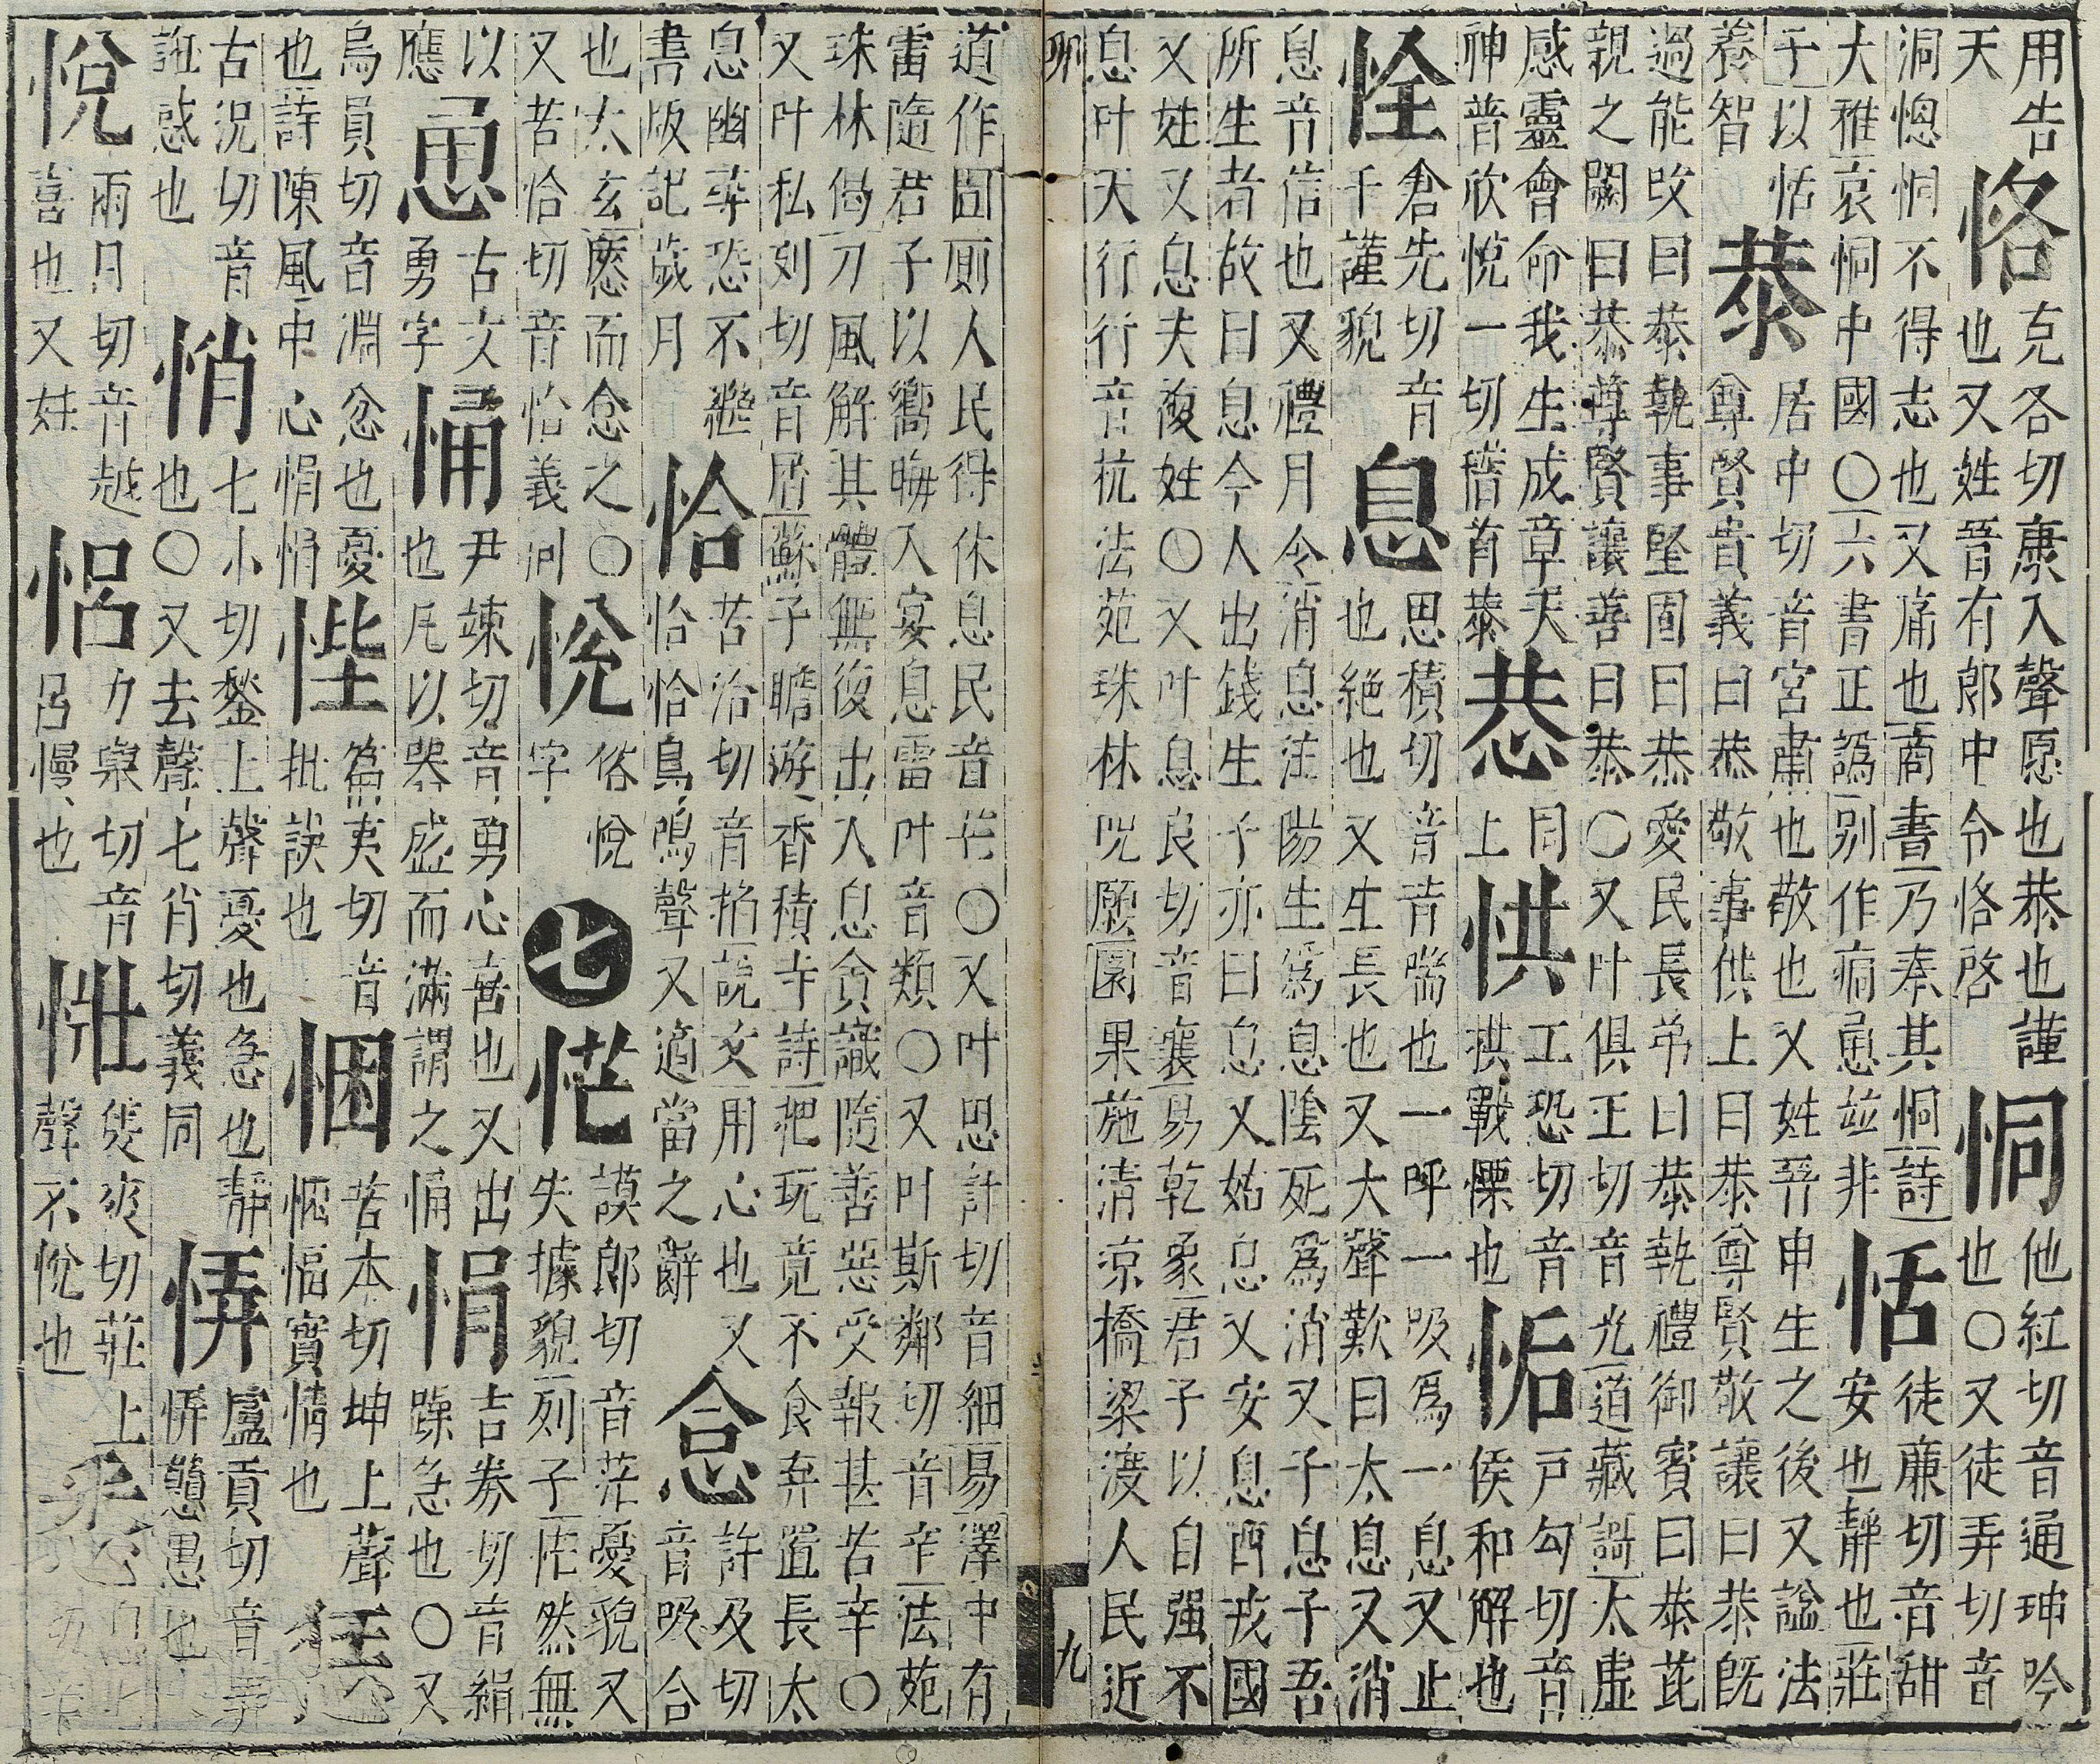 用告
天
恪
克各切康入聲愿也恭也謹
也又姓晉有郎中令恪啓
恫
他紅切音通珅吟
也〇又徒弄切音
洞愡恫不得志也又痛也商書乃奉其恫詩
大雅哀恫中國〇六書正譌別作痌恿竝非
恬
徒廉切音甜
安也靜也莊
于以恬
養智
恭
居中切音宮肅也敬也又姓晉申生之後又諡法
尊賢貴義曰恭敬事供上曰恭尊賢敬讓曰恭旣
過能改曰恭執事堅固曰恭愛民長弟曰恭執禮御賓曰恭芘
親之闕曰恭尊賢讓善曰恭〇又叶俱王切音光道藏謌太虛
感靈會命我生成章天
神普欣悅一切譫首恭
㳟
同
上
㤨
工恐切音
拱戰慄也
㤧
戶勾切音
侯和解也
恮
倉先切音
千謹貌
息
思積切音喘也一呼一吸爲一息又止
也絕也又生長也又大聲歎曰太息又消
息音信也又禮月令消息注陽生爲息陰死爲消又子息子吾
所生者故曰息今人出錢生子亦曰息又姑息又安息西戎國
又姓又息夫複姓〇又叶息良切音襄易乾象君子以自强不
息叶天行行音杭法苑珠林呪願園果施清涼橋梁渡人民近
九
道作圊厠人民得休息民音芒〇又叶思計切音細易澤中有
雷隨君子以嚮晦入宴息雷叶音類〇又叶斯鄰切音辛法苑
珠林偈刀風解其體無復出入息貪識隨善惡受報甚苦辛〇
又叶私列切音屑蘇子瞻游香積寺詩把玩竟不食弃置長太
息幽尋恐不繼
書版記歲月
恰
苦洽切音掐說文用心也又
恰恰鳥鳴聲又適當之辭
許及切
音吸合
也太玄愿而念之〇
又苦恰切音恰義同
恱
俗悅
字
七
㤶
謨郎切音茫憂貌又
失據貌列子㤶然無
以
應
恿
古文
勇字
悀
尹竦切音勇心喜也又出
也凡以器盛而滿謂之悀
悁
吉劵切音絹
躁急也〇又
烏員切音淵忿也憂
也詩陳風中心悁悁
悂
篇夷切音
批誤也
悃
苦本切坤上聲
悃愊實情也
古況切音
誑惑也
悄
七小切鍫上聲憂也急也靜
也〇又去聲七肖切義同
盧貢切音弄
戇愚也
悅
雨月切音越
喜也又姓
力舉切音
呂慢也
徒爽切莊上
聲不悅也